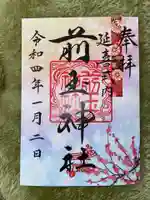 奉拝
延喜式内
前玉神社
令和四年一月二日